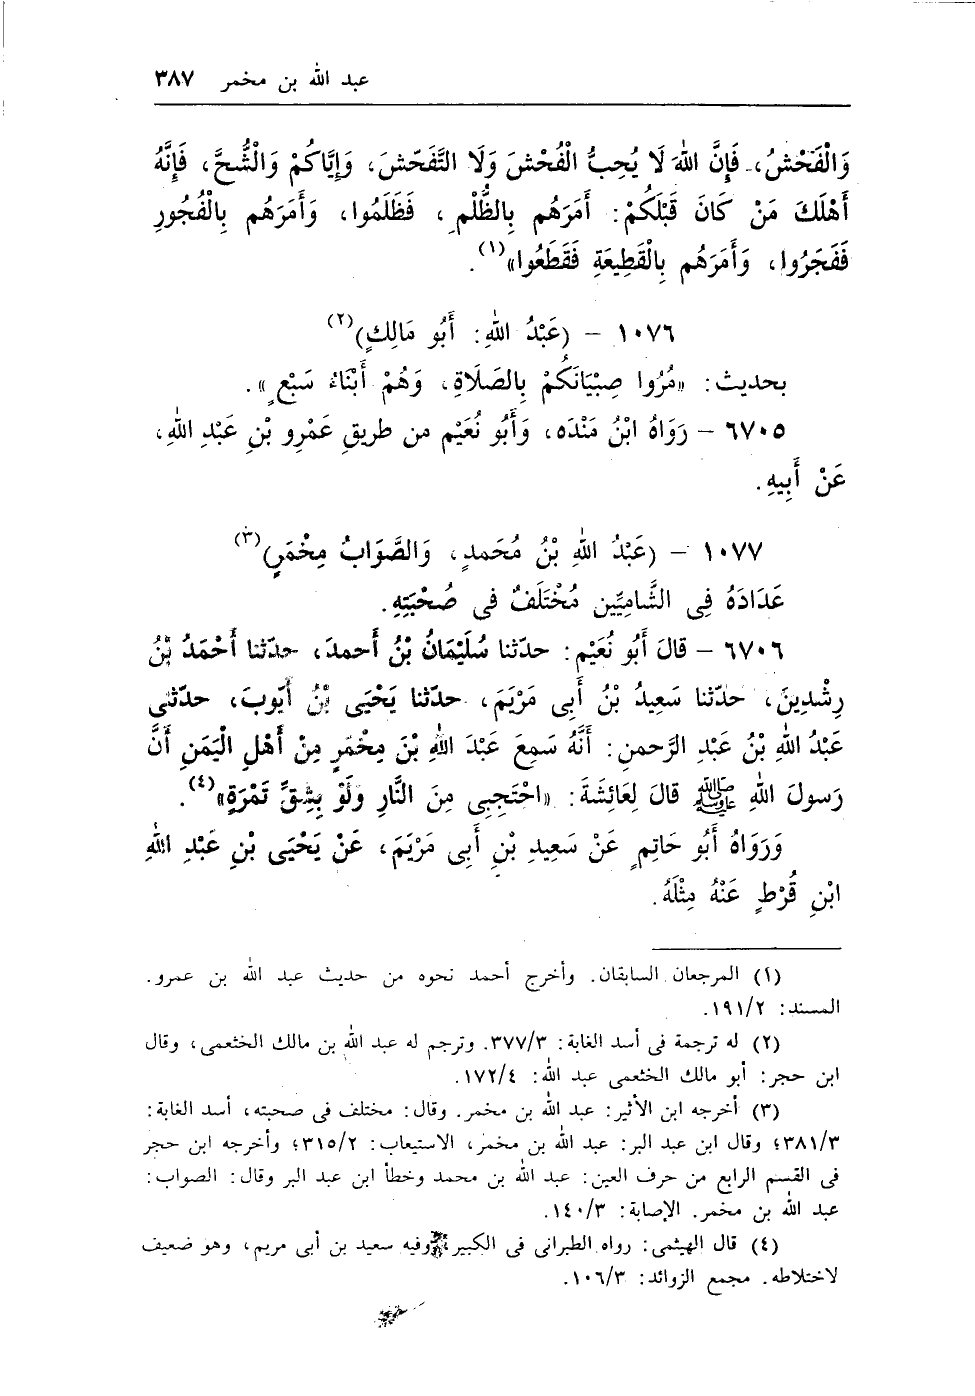 عبد الله بن مخمر ٣٨٧
وَالْفَحْشُ، فَإِنَّ اللهَ لَا يُحِبُّ الْفُحْشَ وَلَا التَّفَحّشَ، وَإِيَّاكُمْ وَالْشُّحَّ، فَإِنَّهُ
أَهْلَكَ مَنْ كَانَ قَبْلَكُمْ: أَمَرَهُم بِالظُّلْمِ، فَظَلَمُوا، وَأَمَرَهُم بِالْفُجُورِ
فَفَجَرُوا، وَأَمَرَهُم بِالْقَطِيعَةِ فَقَطَعُوا»(١).
١٠٧٦ - (عَبْدُ اللهِ: أَبُو مَالِكٍ)(٢)
بحديث: «مُرُوا صِبْيَانَكُمْ بِالصَلَاةِ، وَهُمْ أَبْنَاءُ سَبْعٍ».
٦٧٠٥ - رَوَاهُ ابْنُ مَنْدَه، وَأَبُو نُعَيْم من طريقِ عَمْرِو بْنِ عَبْدِ اللهِ،
عَنْ أَبِيهِ.
١٠٧٧ - (عَبْدُ اللهِ بْنُ مُحَمدٍ، وَالصَّوَابُ مِخْمَرٍ)(٣)
عَدَادَهُ فِى الشَّامِيِّين مُخْتَلَفٌ فى صُحْبَتِهِ.
٦٧٠٦ - قالَ أَبُو نُعَيْم: حدّثنا سُلَيْمَانُ بْنُ أَحمدَ، حدّثنا أَحْمَدُ بْنُ
رِشْدِينَ، حدّثنا سَعِيدُ بْنُ أَبى مَرْيَمَ، حدّثنا يَحْيَى بْنُ أَيّوبَ، حدّثنى
عَبْدُ اللهِ بْنُ عَبْدِ الرَّحمنِ: أَنَّهُ سَمِعَ عَبْدَ اللهِ بْنَ مِخْمَرٍ مِنْ أَهْلِ الْيَمَنِ أَنَّ
رَسولَ اللهِ ﷺ قالَ لِعَائِشَةَ: «احْتَجِبِى مِنَ النَّارِ وَلَوْ بِشِقِّ تَمْرَةٍ»(٤).
وَرَوَاهُ أَبُو حَاتِمٍ عَنْ سَعِيدِ بْنِ أَبِى مَرْيَمَ، عَنْ يَحْيَى بْنِ عَبْدِ اللهِ
ابْنِ قُرْطٍ عَنْهُ مِثْلَهُ.
(١) المرجعان السابقان. وأخرج أحمد نحوه من حديث عبد الله بن عمرو.
المسند: ١٩١/٢.
(٢) له ترجمة فى أسد الغابة: ٣٧٧/٣. وترجم له عبد الله بن مالك الخثعمى، وقال
ابن حجر: أبو مالك الخثعمى عبد الله: ١٧٢/٤.
(٣) أخرجه ابن الأثير: عبد الله بن مخمر. وقال: مختلف فى صحبته، أسد الغابة:
٣٨١/٣؛ وقال ابن عبد البر: عبد الله بن مخمر، الاستيعاب: ٣١٥/٢؛ وأخرجه ابن حجر
فى القسم الرابع من حرف العين: عبد الله بن محمد وخطأ ابن عبد البر وقال: الصواب:
عبد الله بن مخمر. الإصابة: ١٤٠/٣.
(٤) قال الهيثمى: رواه الطبرانى فى الكبير وفيه سعيد بن أبى مريم، وهو ضعيف
لاختلاطه. مجمع الزوائد: ١٠٦/٣.